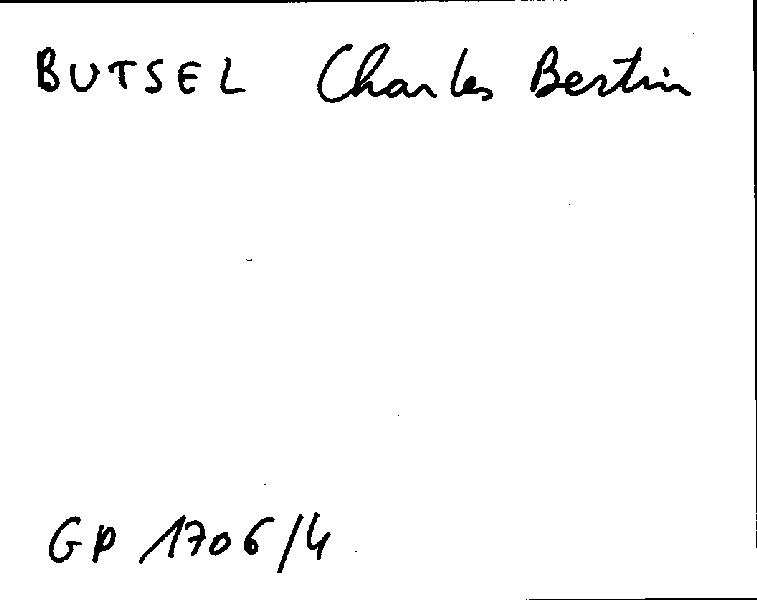 BUTSEL Charles Bertin
GP 1706/4